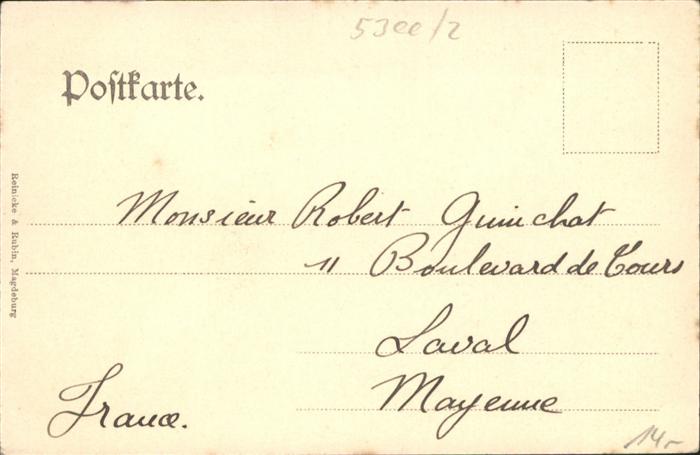 53ee/2
Postkarte.
Reinicke & Rubin, Magdeburg
Monsieur Robert Guinchat
11 Boulevard de Tours
Laval
Mayenne
France.
14-